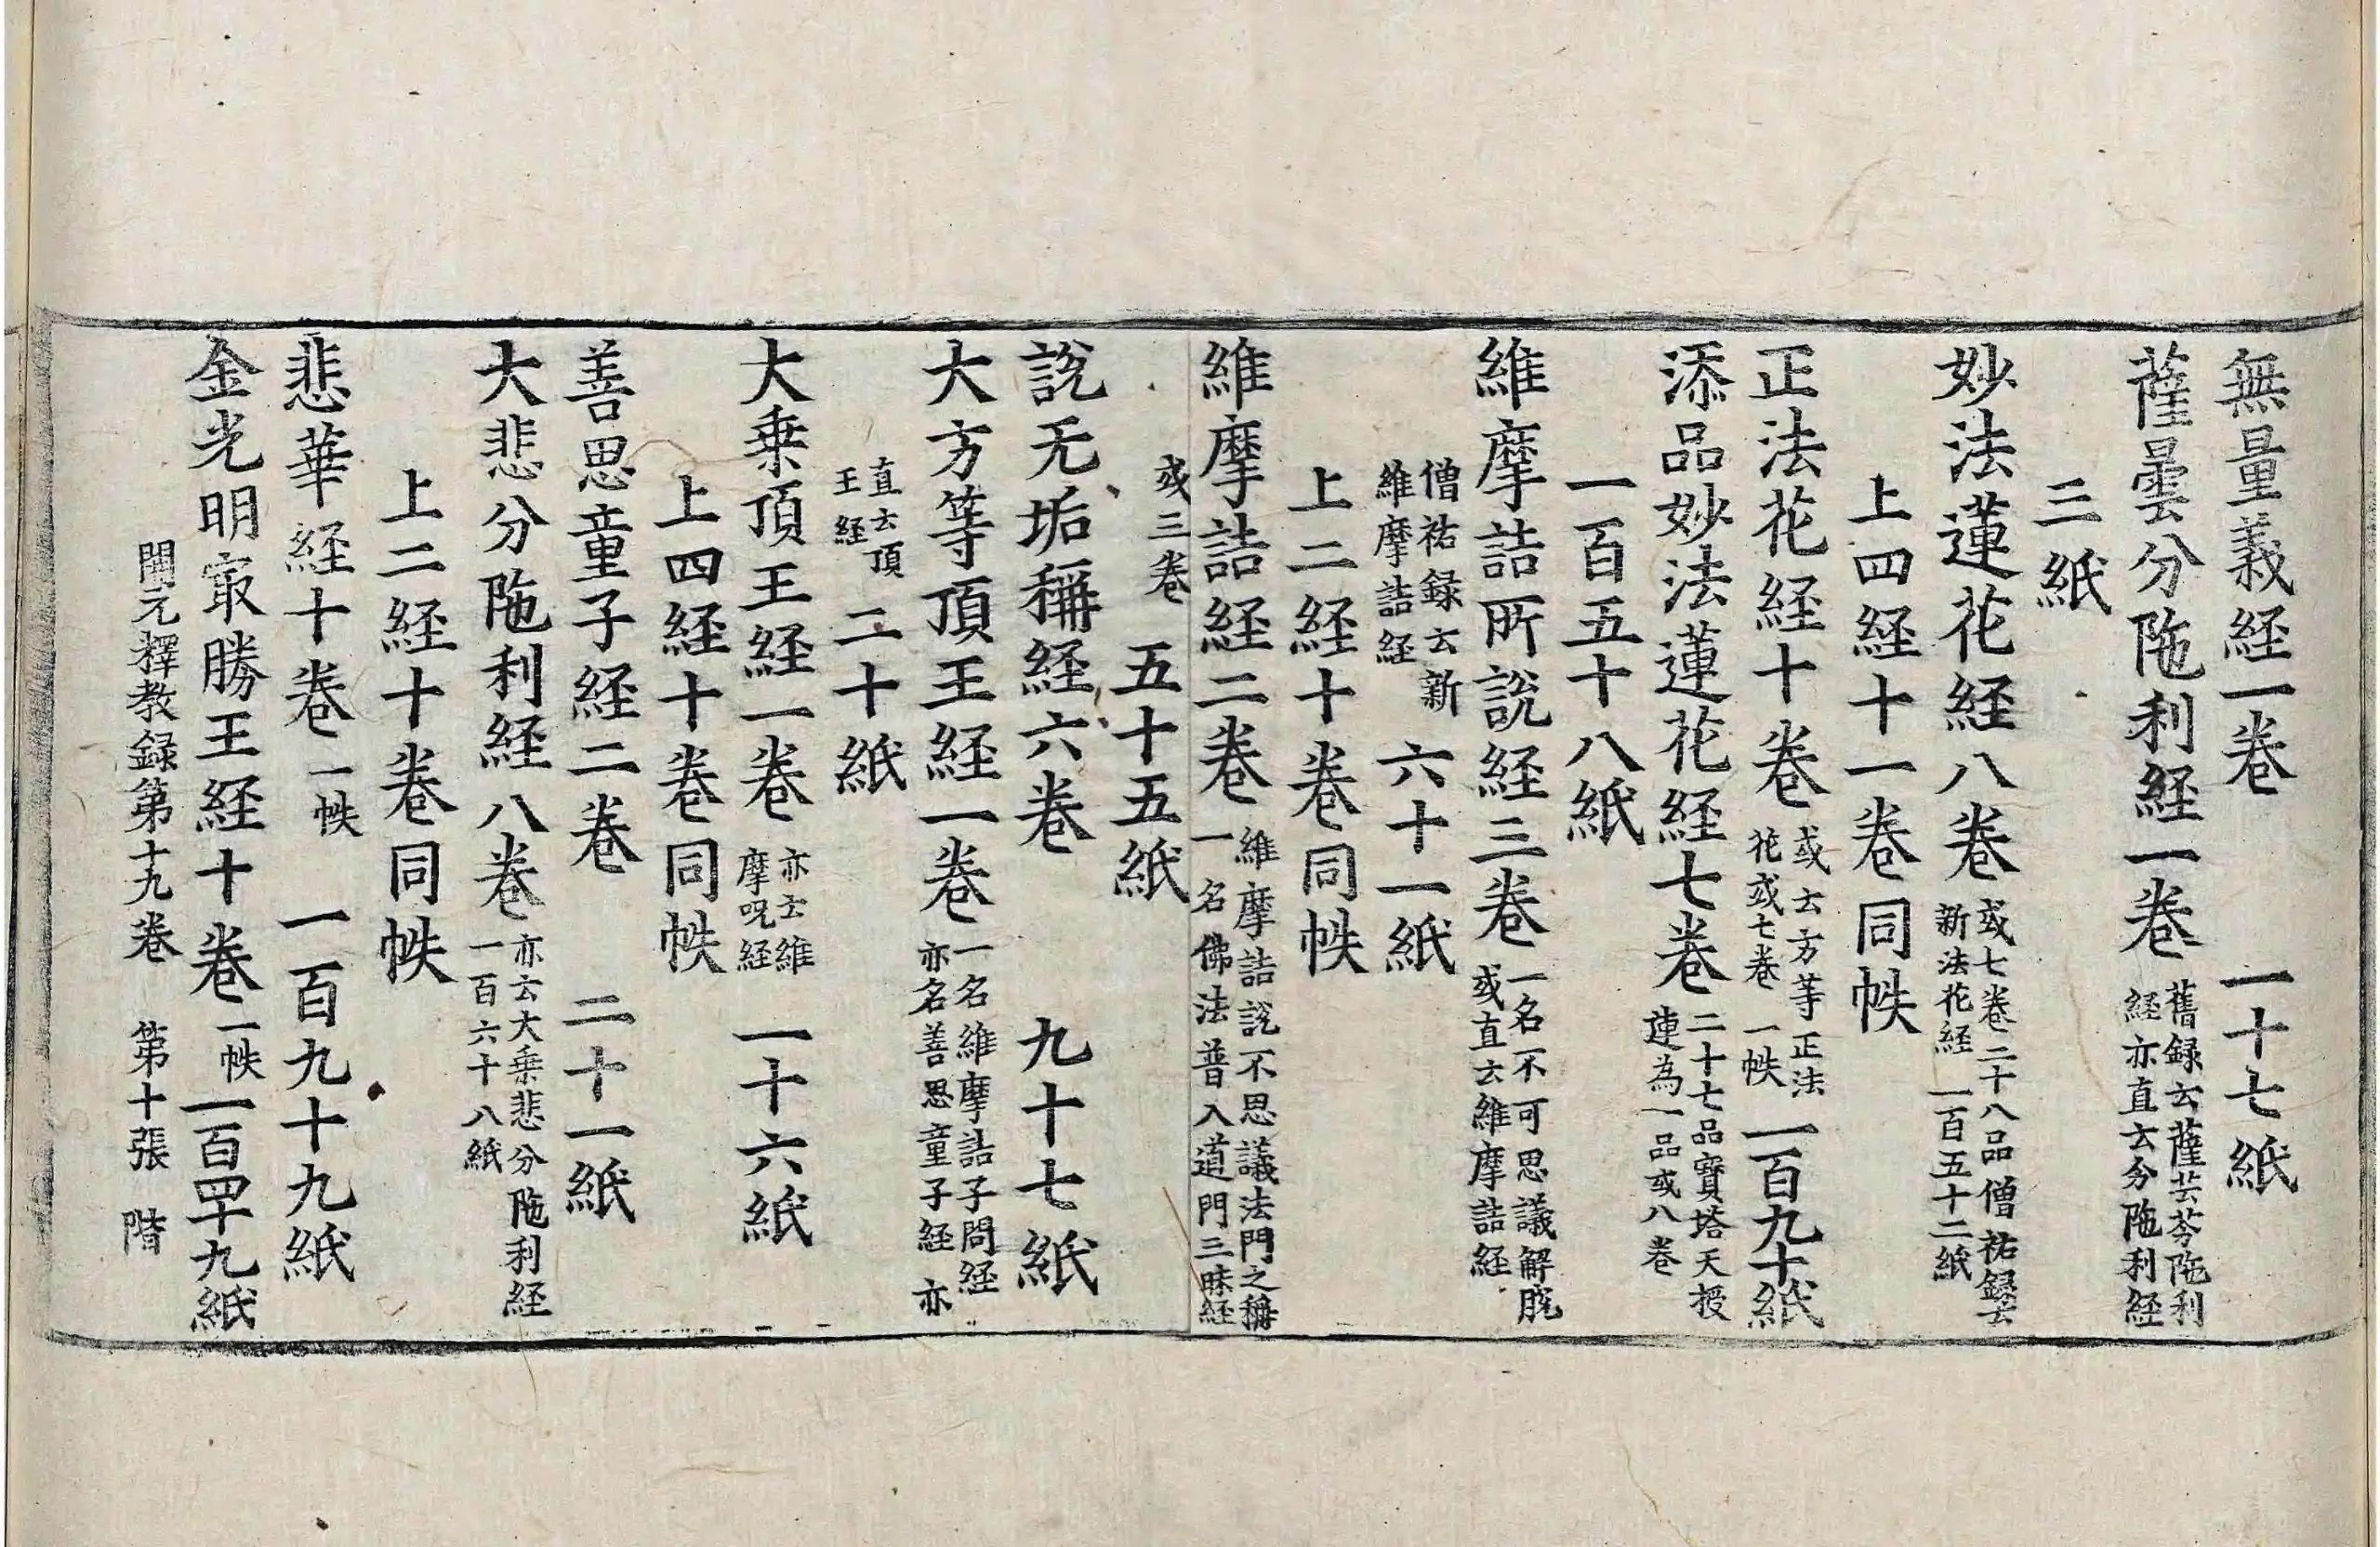 無量義経一卷　一十七紙
薩曇分陁利経一卷 舊録云薩芸芬陁利経亦直云分陁利経
三紙
妙法蓮花経八卷 或七卷二十八品僧祐録云新法花経 一百五十二紙
上四経十一卷同帙
正法花経十卷 或云方等正法花或七卷 一帙 一百九十紙
添品妙法蓮花経七卷 二十七品寶塔天授連為一品或八卷
一百五十八紙
維摩詰所說経三卷 一名不可思議解脫或直云維摩詰経
僧祐録云新維摩詰経 六十一紙
上二経十卷同帙
維摩詰経二卷 維摩詰說不思議法門之稱一名佛法普入道門三昧経
或三卷 五十五紙
說无垢稱経六卷　九十七紙
大方等頂王経一卷 一名維摩詰子問経亦名善思童子経 亦
直云頂王経 二十紙
大乗頂王経一卷 亦云維摩呪経 一十六紙
上四経十卷同帙
善思童子経二卷　二十一紙
大悲分陁利経八卷 亦云大乗悲分陁利経一百六十八紙
上二経十卷同帙
悲華経十卷 一帙 一百九十九紙
金光明冣勝王経十卷 一帙 一百四十九紙
開元釋教録第十九卷　第十張　階